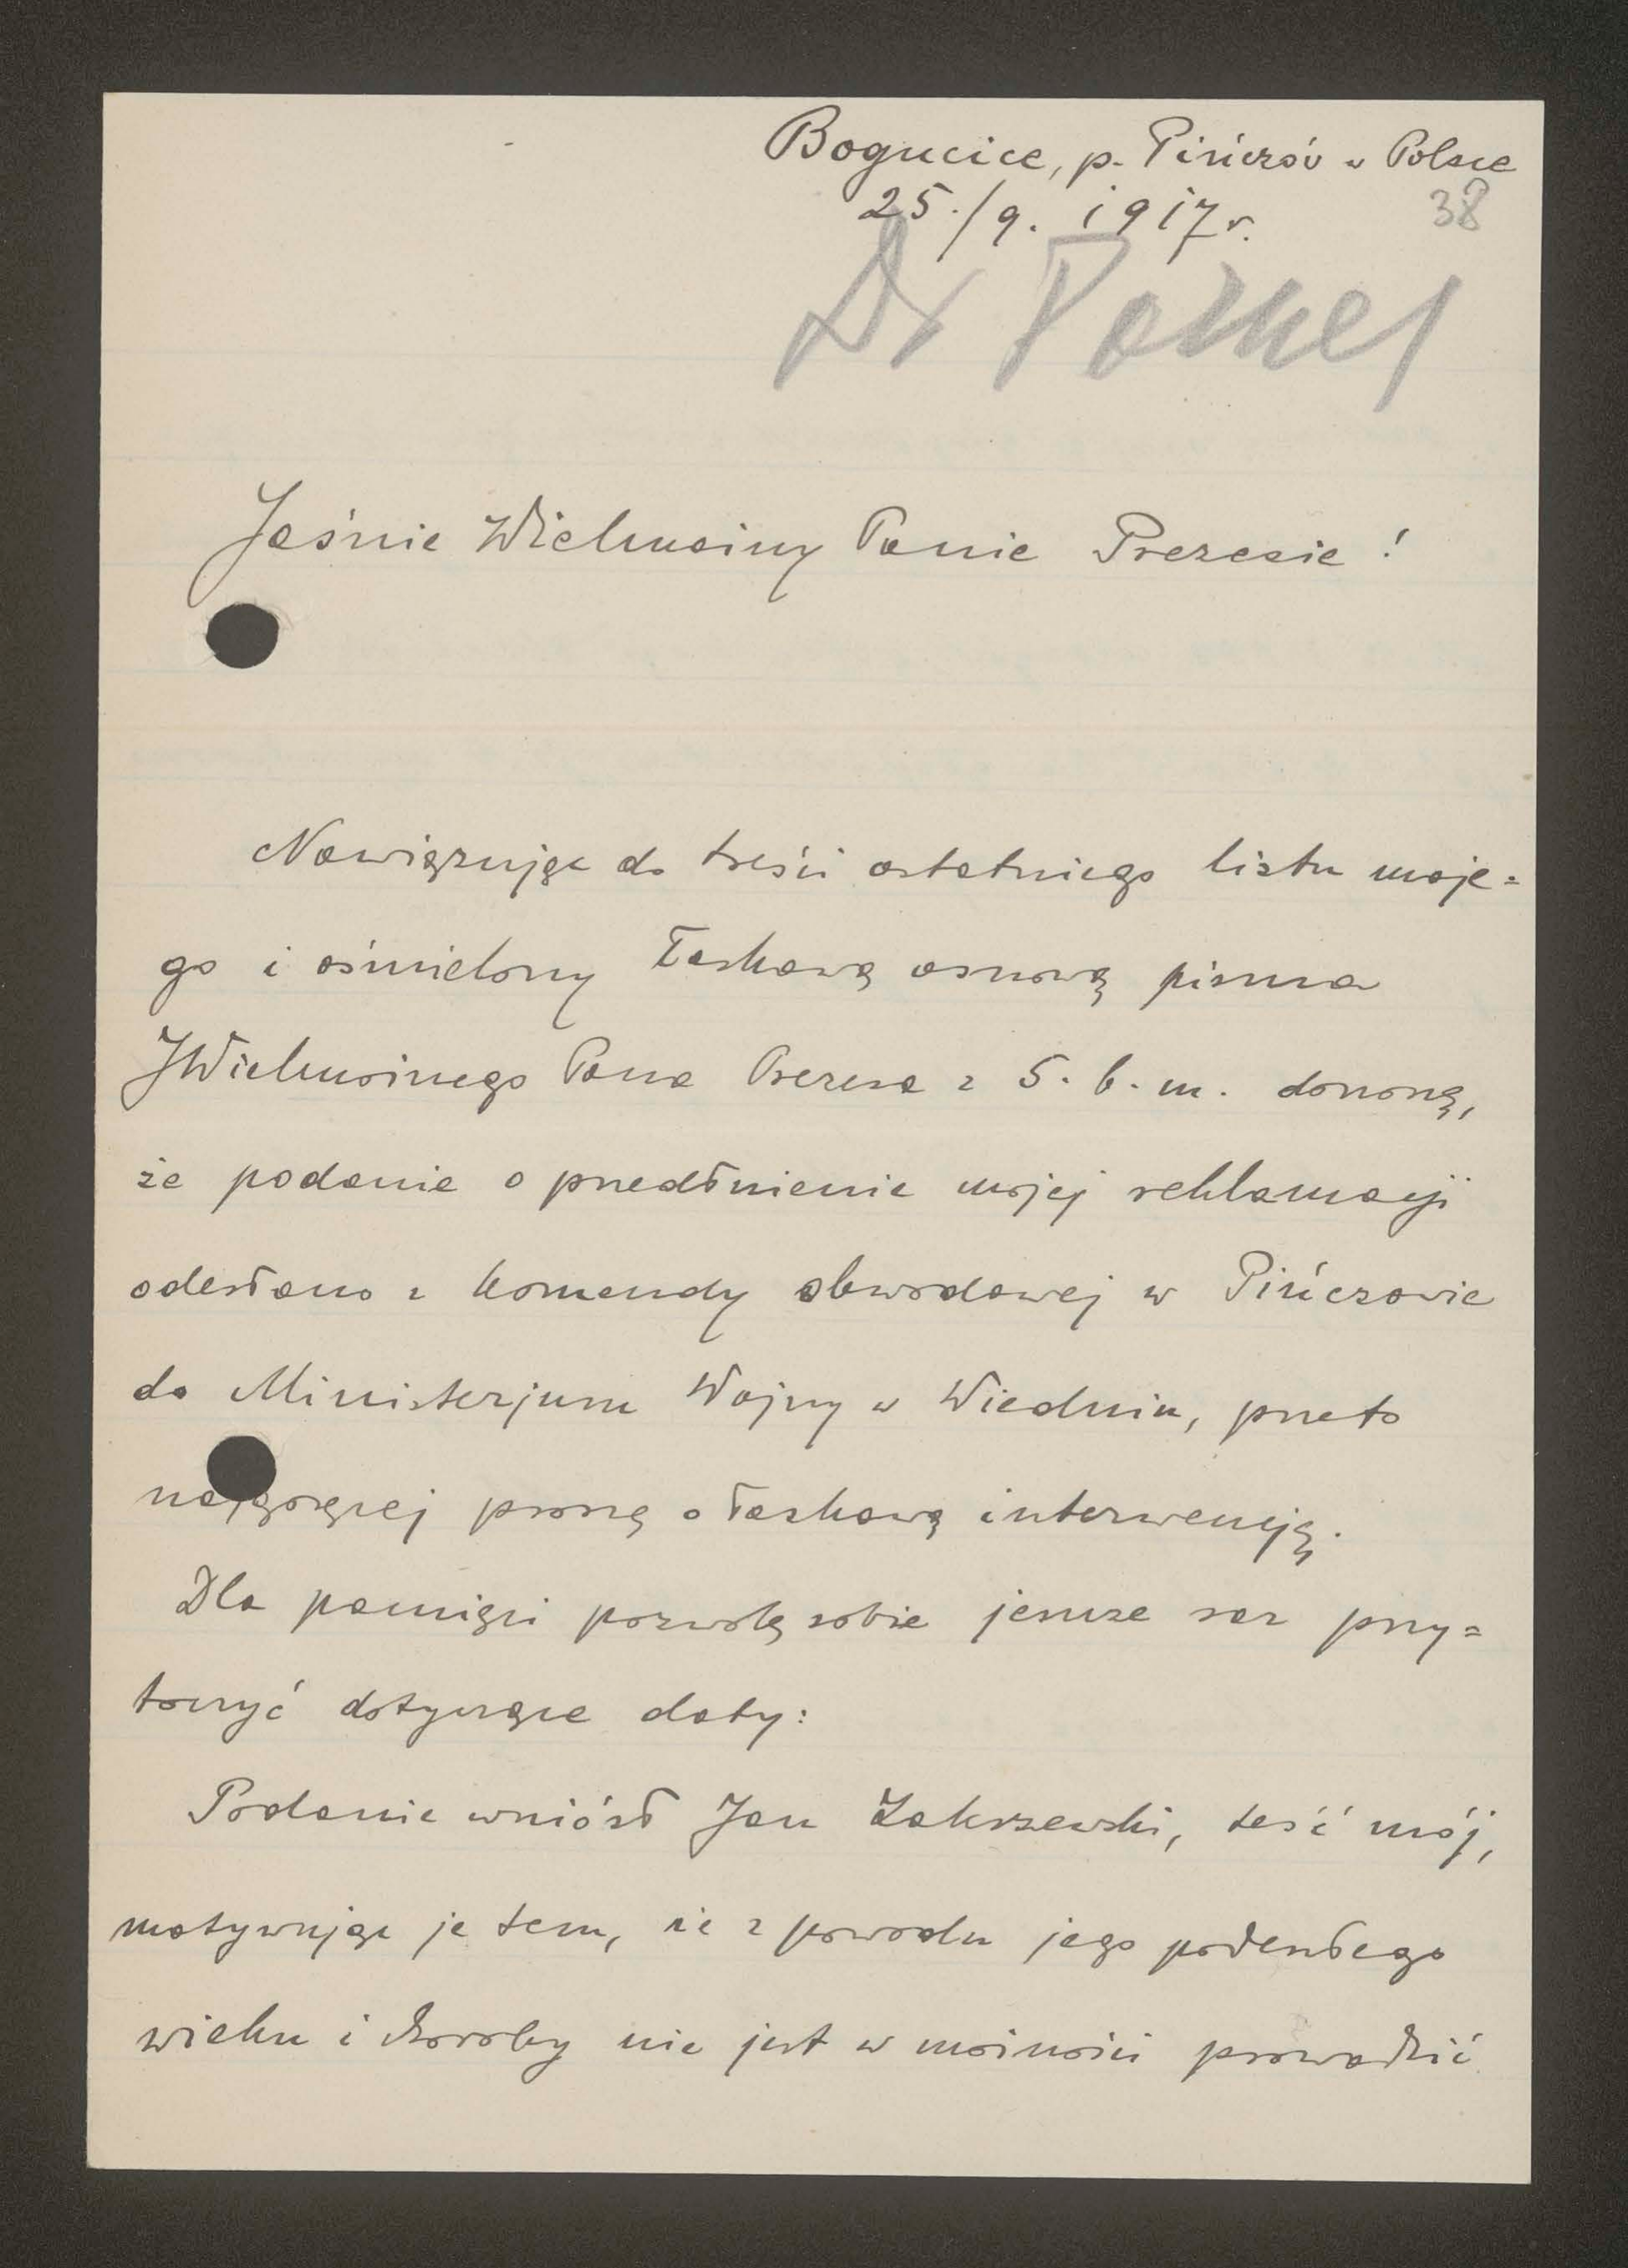 Bogucice, p. Pińczów w Polsce
25./9. 1917 r.
38
Dr
Jaśnie Wielmożny Panie Prezesie!
Nawiązując do treści ostatniego listu moje=
go i ośmielony łaskawą osnową pisma
JWielmożnego Pana Prezesa z 5. b. m. donoszę,
że podanie o przedłużenie mojej reklamacji
odesłano z komendy obwodowej w Pińczowie
do Ministerjum Wojny w Wiedniu, przeto
najgoręcej proszę o łaskawą interwencję.
Dla pamięci pozwolę sobie jeszcze raz przy=
toczyć dotyczące daty:
Podanie wniósł Jan Zakrzewski, teść mój,
motywując je tem, że z powodu jego podeszłego
wieku i choroby nie jest w możności prowadzić